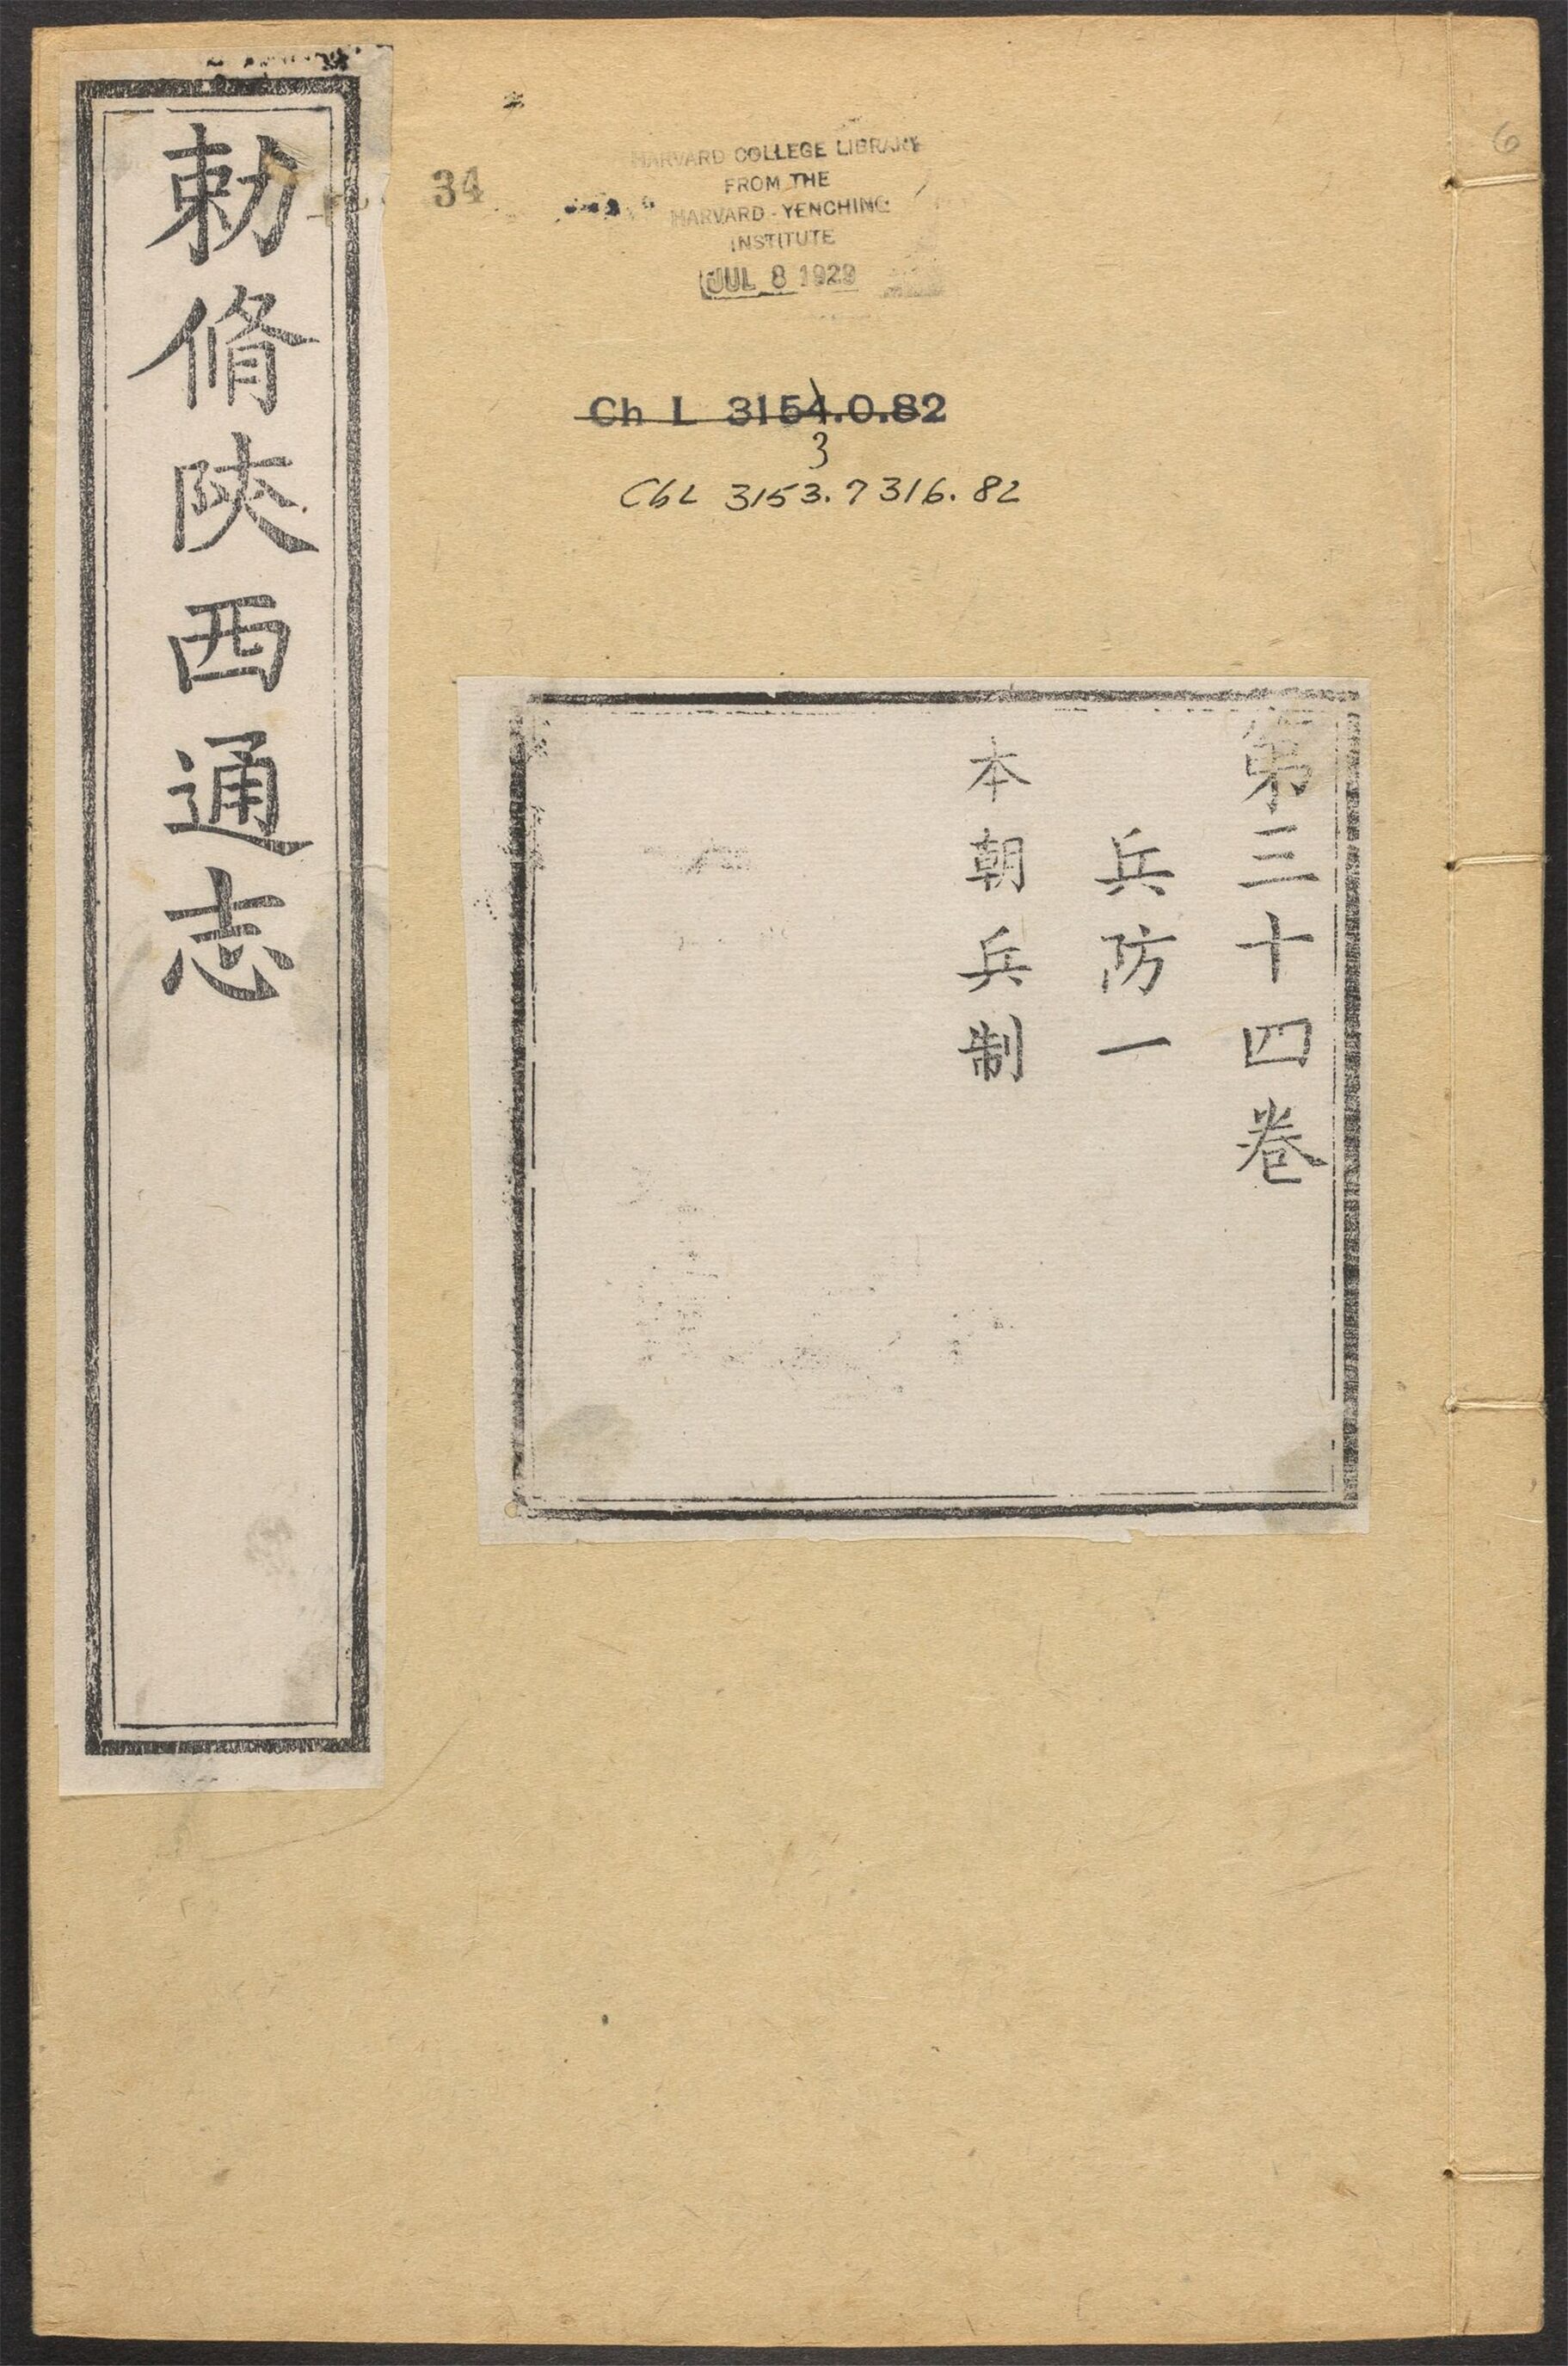 勅脩陝西通志
34
HARVARD COLLEGE LIBRARY
FROM THE
HARVARD-YENCHING
INSTITUTE
JUL 8 1929
Ch L 3154.0.82
3
ChL 3153.7316.82
6
第三十四卷
兵防一
本朝兵制